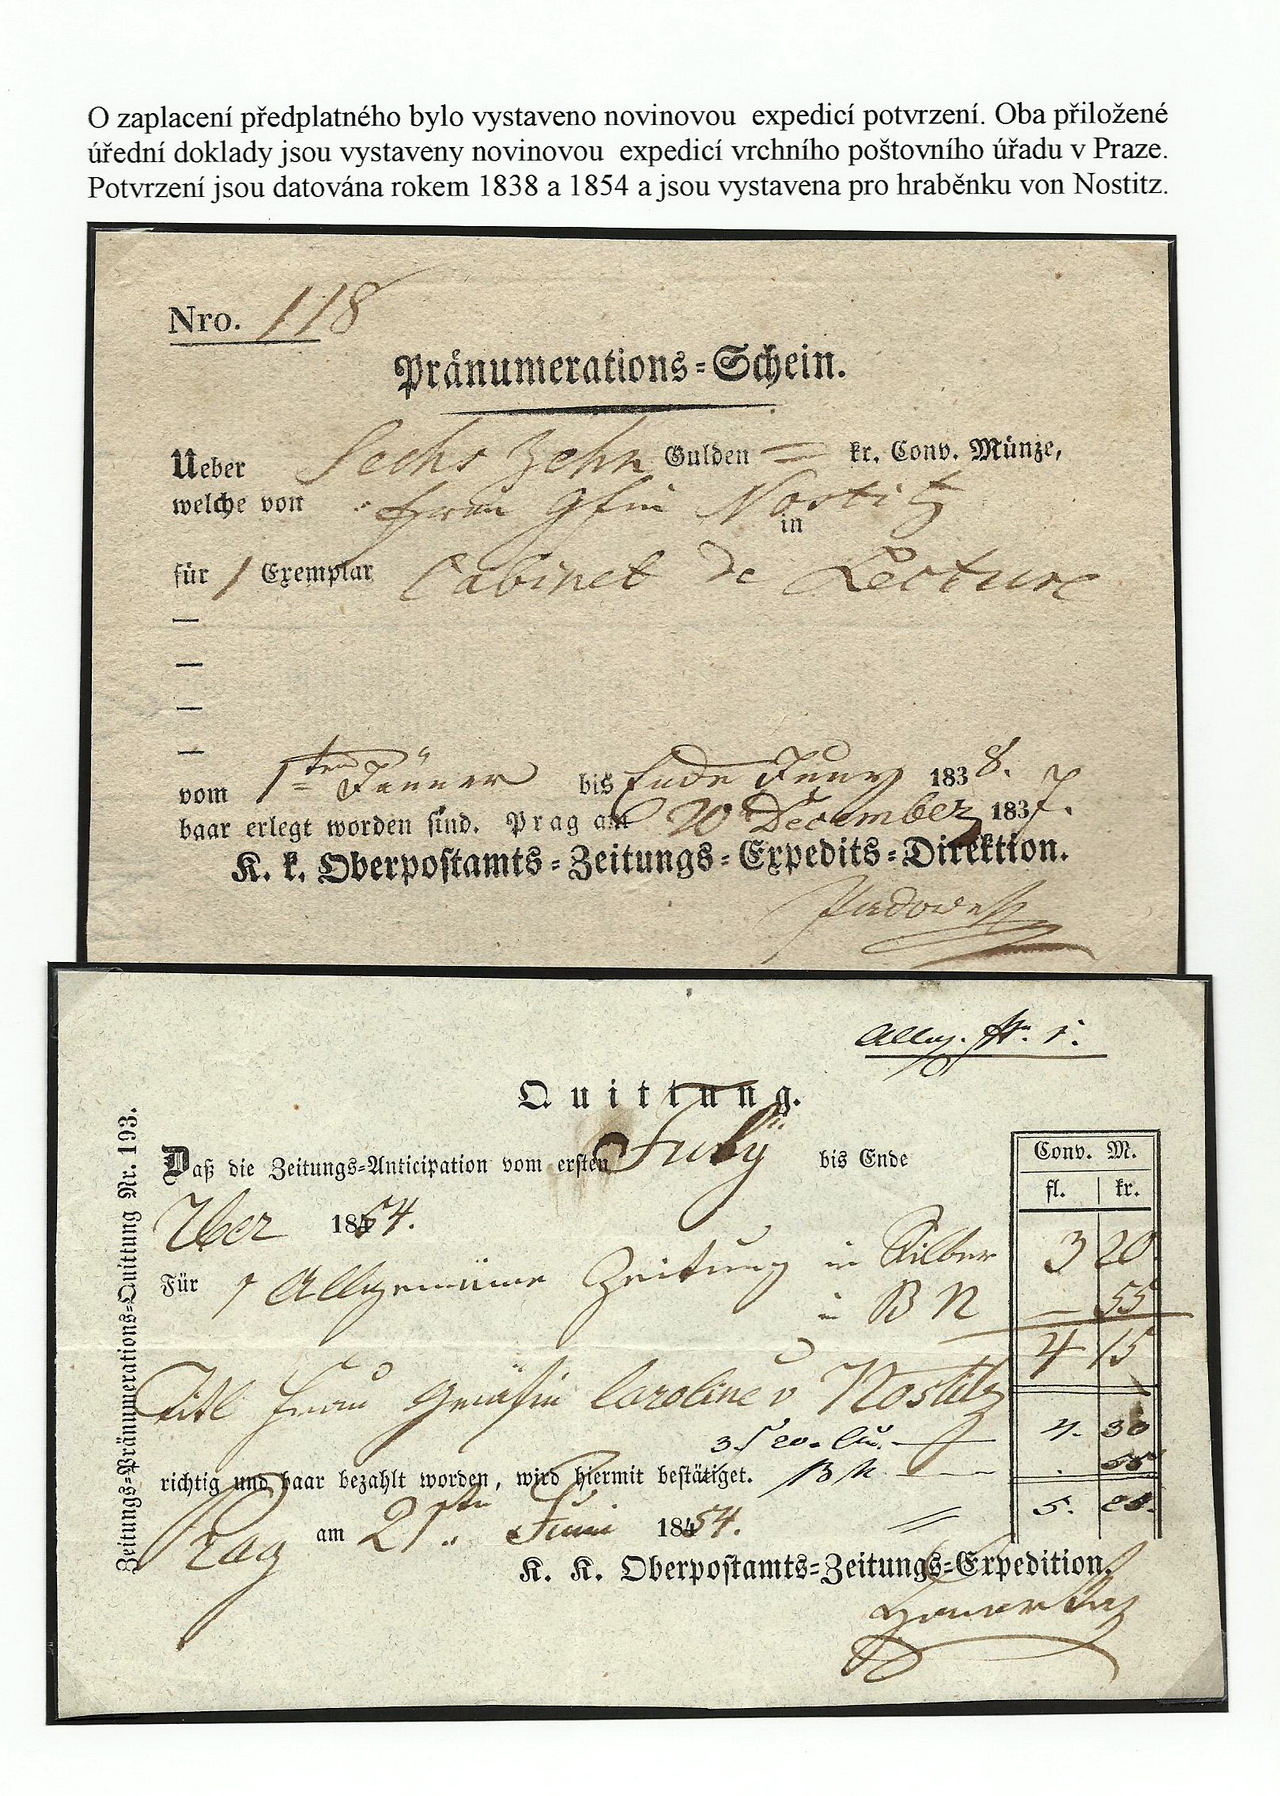 O zaplacení předplatného bylo vystaveno novinovou expedicí potvrzení. Oba přiložené
úřední doklady jsou vystaveny novinovou expedicí vrchního poštovního úřadu v Praze.
Potvrzení jsou datována rokem 1838 a 1854 a jsou vystavena pro hraběnku von Nostitz.
Nro. 118
Pränumerations=Schein.
Ueber Sechs Zehn Gulden = kr. Conv. Münze,
welche von Frau Gfin Nostitz
in
für 1 Exemplar Cabinet de Lecture
—
—
—
—
vom 1ten Jänner bis Ende Juny 1838.
baar erlegt worden sind. Prag am 20 December 1837.
K. k. Oberpostamts=Zeitungs=Expedits=Direktion.
Quittung.
Zeitungs=Pränumerations=Quittung Nr. 193.
Daß die Zeitungs=Anticipation vom ersten July bis Ende
Conv. M.
fl. kr.
7ber 1854.
Für 1 Allgemeine Zeitung in Silber 3 20
in BN — 55
4 15
Titl Frau Gräfin Caroline v Nostitz
4. 30
richtig und baar bezahlt worden, wird hiermit bestätiget. BN
Prag am 21ten Juni 1854.
K. K. Oberpostamts=Zeitungs=Expedition.